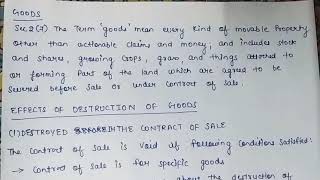 GOODS
Sec 2(7) The Term 'goods' mean every kind of movable Property
other than actionable claims and money; and includes stock
and shares, growing crops, grass, and things attached to
or forming Part of the land which are agreed to be
severed before sale or under contract of sale.
EFFECTS OF DESTRUCTION OF GOODS
(1) DESTROYED BEFORE THE CONTRACT OF SALE
The contract of sale is void if following conditions satisfied:
→ Contract of sale is for specific goods
about the destruction of